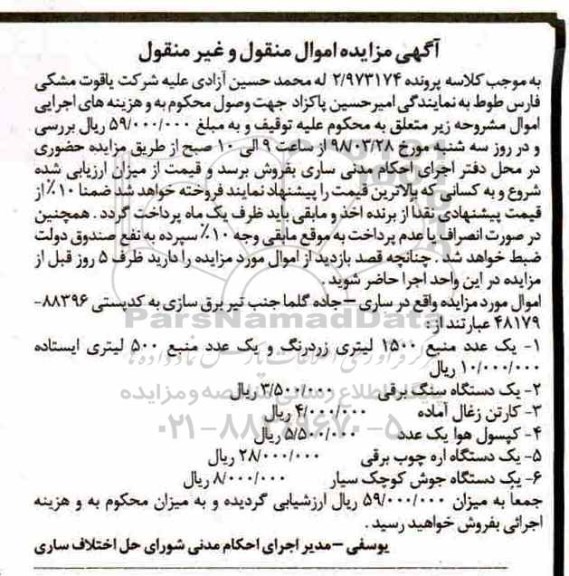 آگهی مزایده اموال منقول و غیر منقول
به موجب کلاسه پرونده ۲/۹۷۳۱۷۴ له محمد حسین آزادی علیه شرکت یاقوت مشکی
فارس طوط به نمایندگی امیرحسین پاکزاد جهت وصول محکوم به و هزینه های اجرایی
اموال مشروحه زیر متعلق به محکوم علیه توقیف و به مبلغ ۵۹/۰۰۰/۰۰۰ ریال بررسی
و در روز سه شنبه مورخ ۹۸/۰۳/۲۸ از ساعت ۹ الی ۱۰ صبح از طریق مزایده حضوری
در محل دفتر اجرای احکام مدنی ساری بفروش برسد و قیمت از میزان ارزیابی شده
شروع و به کسانی که بالاترین قیمت را پیشنهاد نمایند فروخته خواهد شد ضمنا ۱۰٪ از
قیمت پیشنهادی نقدا از برنده اخذ و مابقی باید ظرف یک ماه پرداخت گردد . همچنین
در صورت انصراف یا عدم پرداخت به موقع مابقی وجه ۱۰٪ سپرده به نفع صندوق دولت
ضبط خواهد شد . چنانچه قصد بازدید از اموال مورد مزایده را دارید ظرف ۵ روز قبل از
مزایده در این واحد اجرا حاضر شوید .
اموال مورد مزایده واقع در ساری – جاده گلما جنب تیر برق سازی به کدپستی ۸۸۳۹۶-
۴۸۱۷۹ عبارتند از :
۱- یک عدد منبع ۱۵۰۰ لیتری زردرنگ و یک عدد منبع ۵۰۰ لیتری ایستاده
۱۰/۰۰۰/۰۰۰ ریال
۲- یک دستگاه سنگ برقی ۳/۵۰۰/۰۰۰ ریال
۳- کارتن زغال آماده ۴/۰۰۰/۰۰۰ ریال
۴- کپسول هوا یک عدد ۵/۵۰۰/۰۰۰ ریال
۵- یک دستگاه اره چوب برقی ۲۸/۰۰۰/۰۰۰ ریال
۶- یک دستگاه جوش کوچک سیار ۸/۰۰۰/۰۰۰ ریال
جمعا به میزان ۵۹/۰۰۰/۰۰۰ ریال ارزشیابی گردیده و به میزان محکوم به و هزینه
اجرائی بفروش خواهید رسید .
یوسفی – مدیر اجرای احکام مدنی شورای حل اختلاف ساری
ParsNamadData
۰۲۱-۸۸۳۴۹۶۷۰-۵